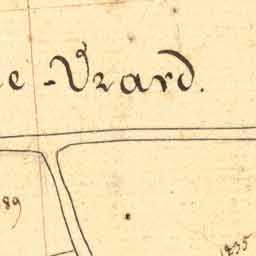 e - Vrard.
89
1235